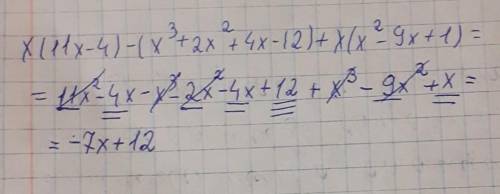 x(11x-4)-(x³+2x²+4x-12)+x(x²-9x+1)=
=11x²-4x-x³-2x²-4x+12+x³-9x²+x=
=-7x+12